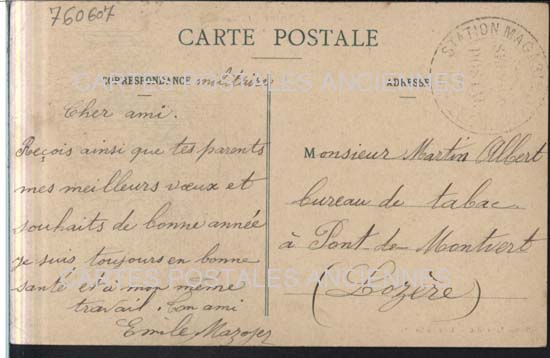 760607
CARTE POSTALE
CORRESPONDANCE militaire
ADRESSE
STATION MAG
CARTES POSTALES ANCIENNES
Cher ami.
Reçois ainsi que tes parents
mes meilleurs vœux et
souhaits de bonne année
je suis toujours en bonne
santé et à mon même
travail. Ton ami
Emile Mazoyer
Monsieur Martin Albert
bureau de tabac
à Pont de Montvert
(Lozère)
CARTES POSTALES ANCIENNES